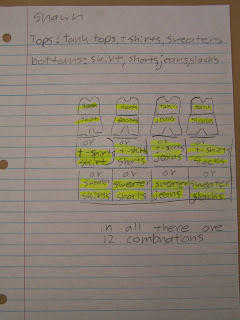 Shawn
Tops: tank tops, t-shirts, sweaters
bottoms: skirt, shorts, jeans, slacks
tank tank tank tank
skirt shorts jeans slacks
or or or or
t-shirts t-shirts t-shirts t-shirts
skirt shorts jeans slacks
or or or or
sweater sweater sweater sweater
skirts shorts jeans slacks
in all there are
12 combnations